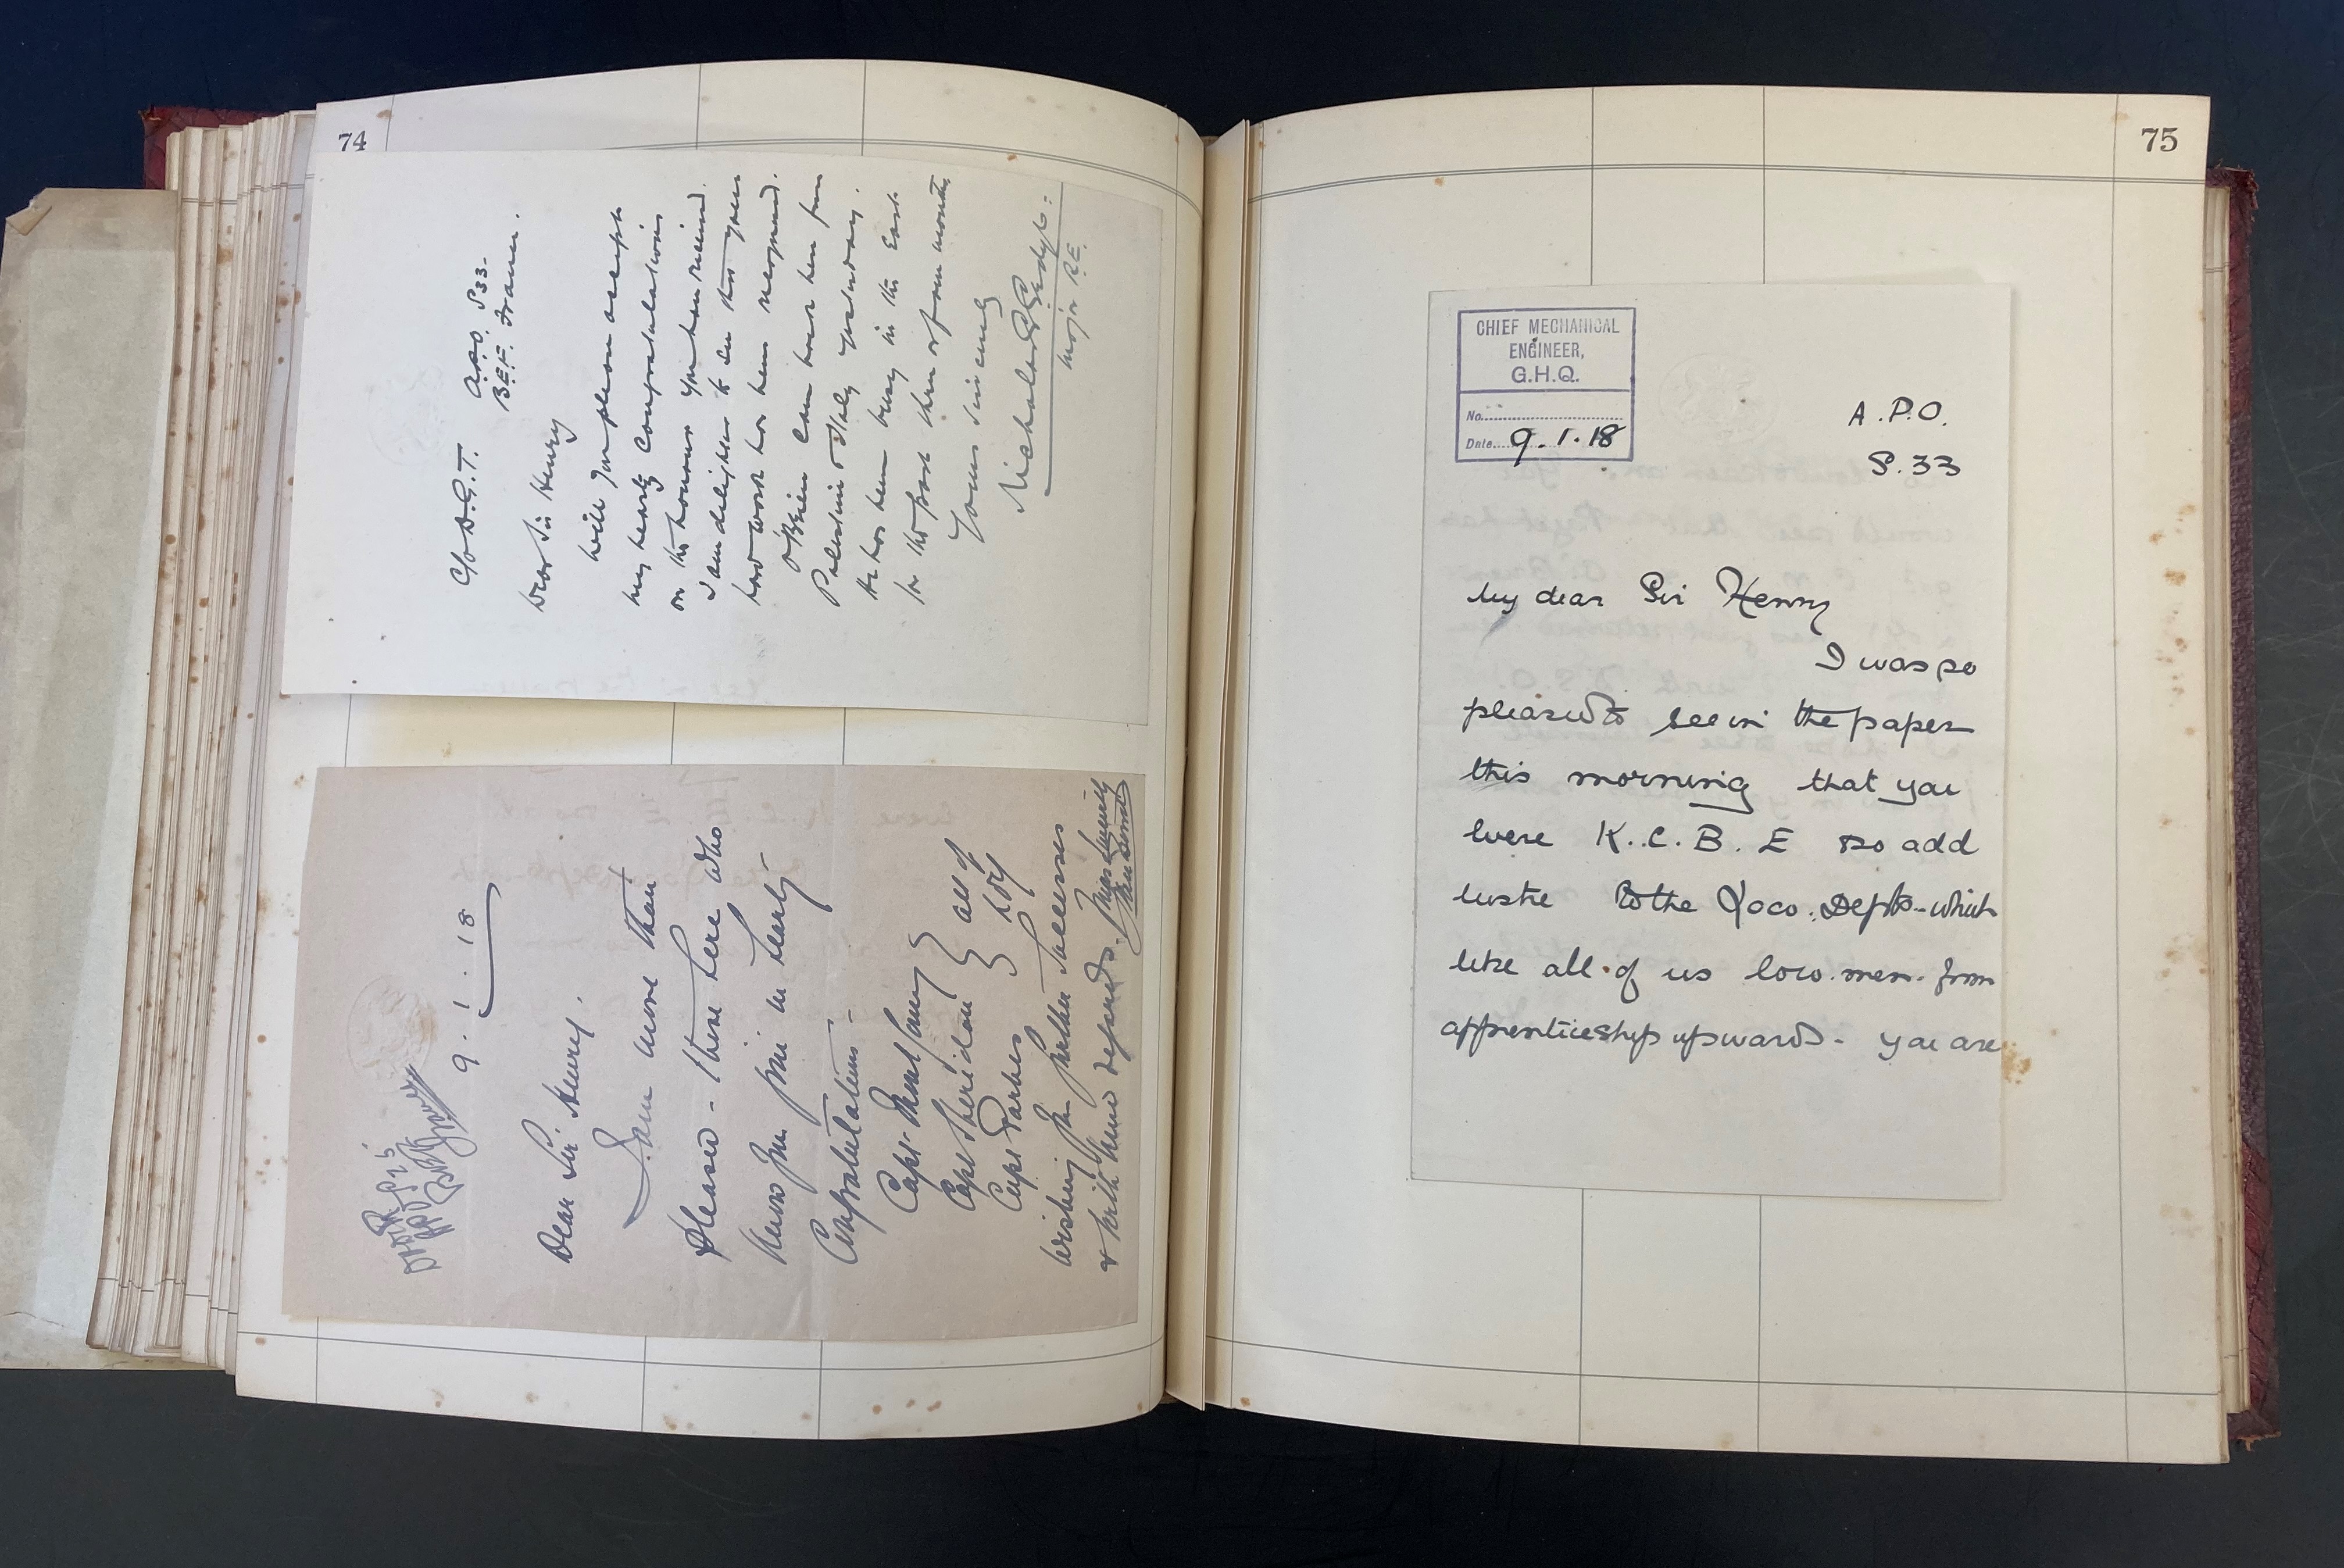 74
C/o D.G.T.
A.P.O. S33.
B.E.F. France.
Dear Sir Henry
Will you please accept
my hearty congratulations
on the honour you have received.
I am delighted to see that your
hard work has been recognised.
O'Brien came home here from
Palestine & Italy yesterday.
He has been busy in the East
for the past three or four months
Yours sincerely
Major RE.
9.1.18
Dear Sir Henry.
I am more than
pleased - & those here who
know you join in hearty
Congratulations -
Capt
Capt Sheridan
Capt Parkes
all of
Wishing you further Successes
& Kind
Yours Sincerely
75
CHIEF MECHANICAL
ENGINEER,
G.H.Q.
No.
Date 9.1.18
A.P.O.
S.33
My dear Sir Henry
I was so
pleased to see in the paper
this morning that you
were K.C.B.E so add
lustre to the Loco. Depts - which
like all of us loco. men - from
apprenticeship upwards - you are